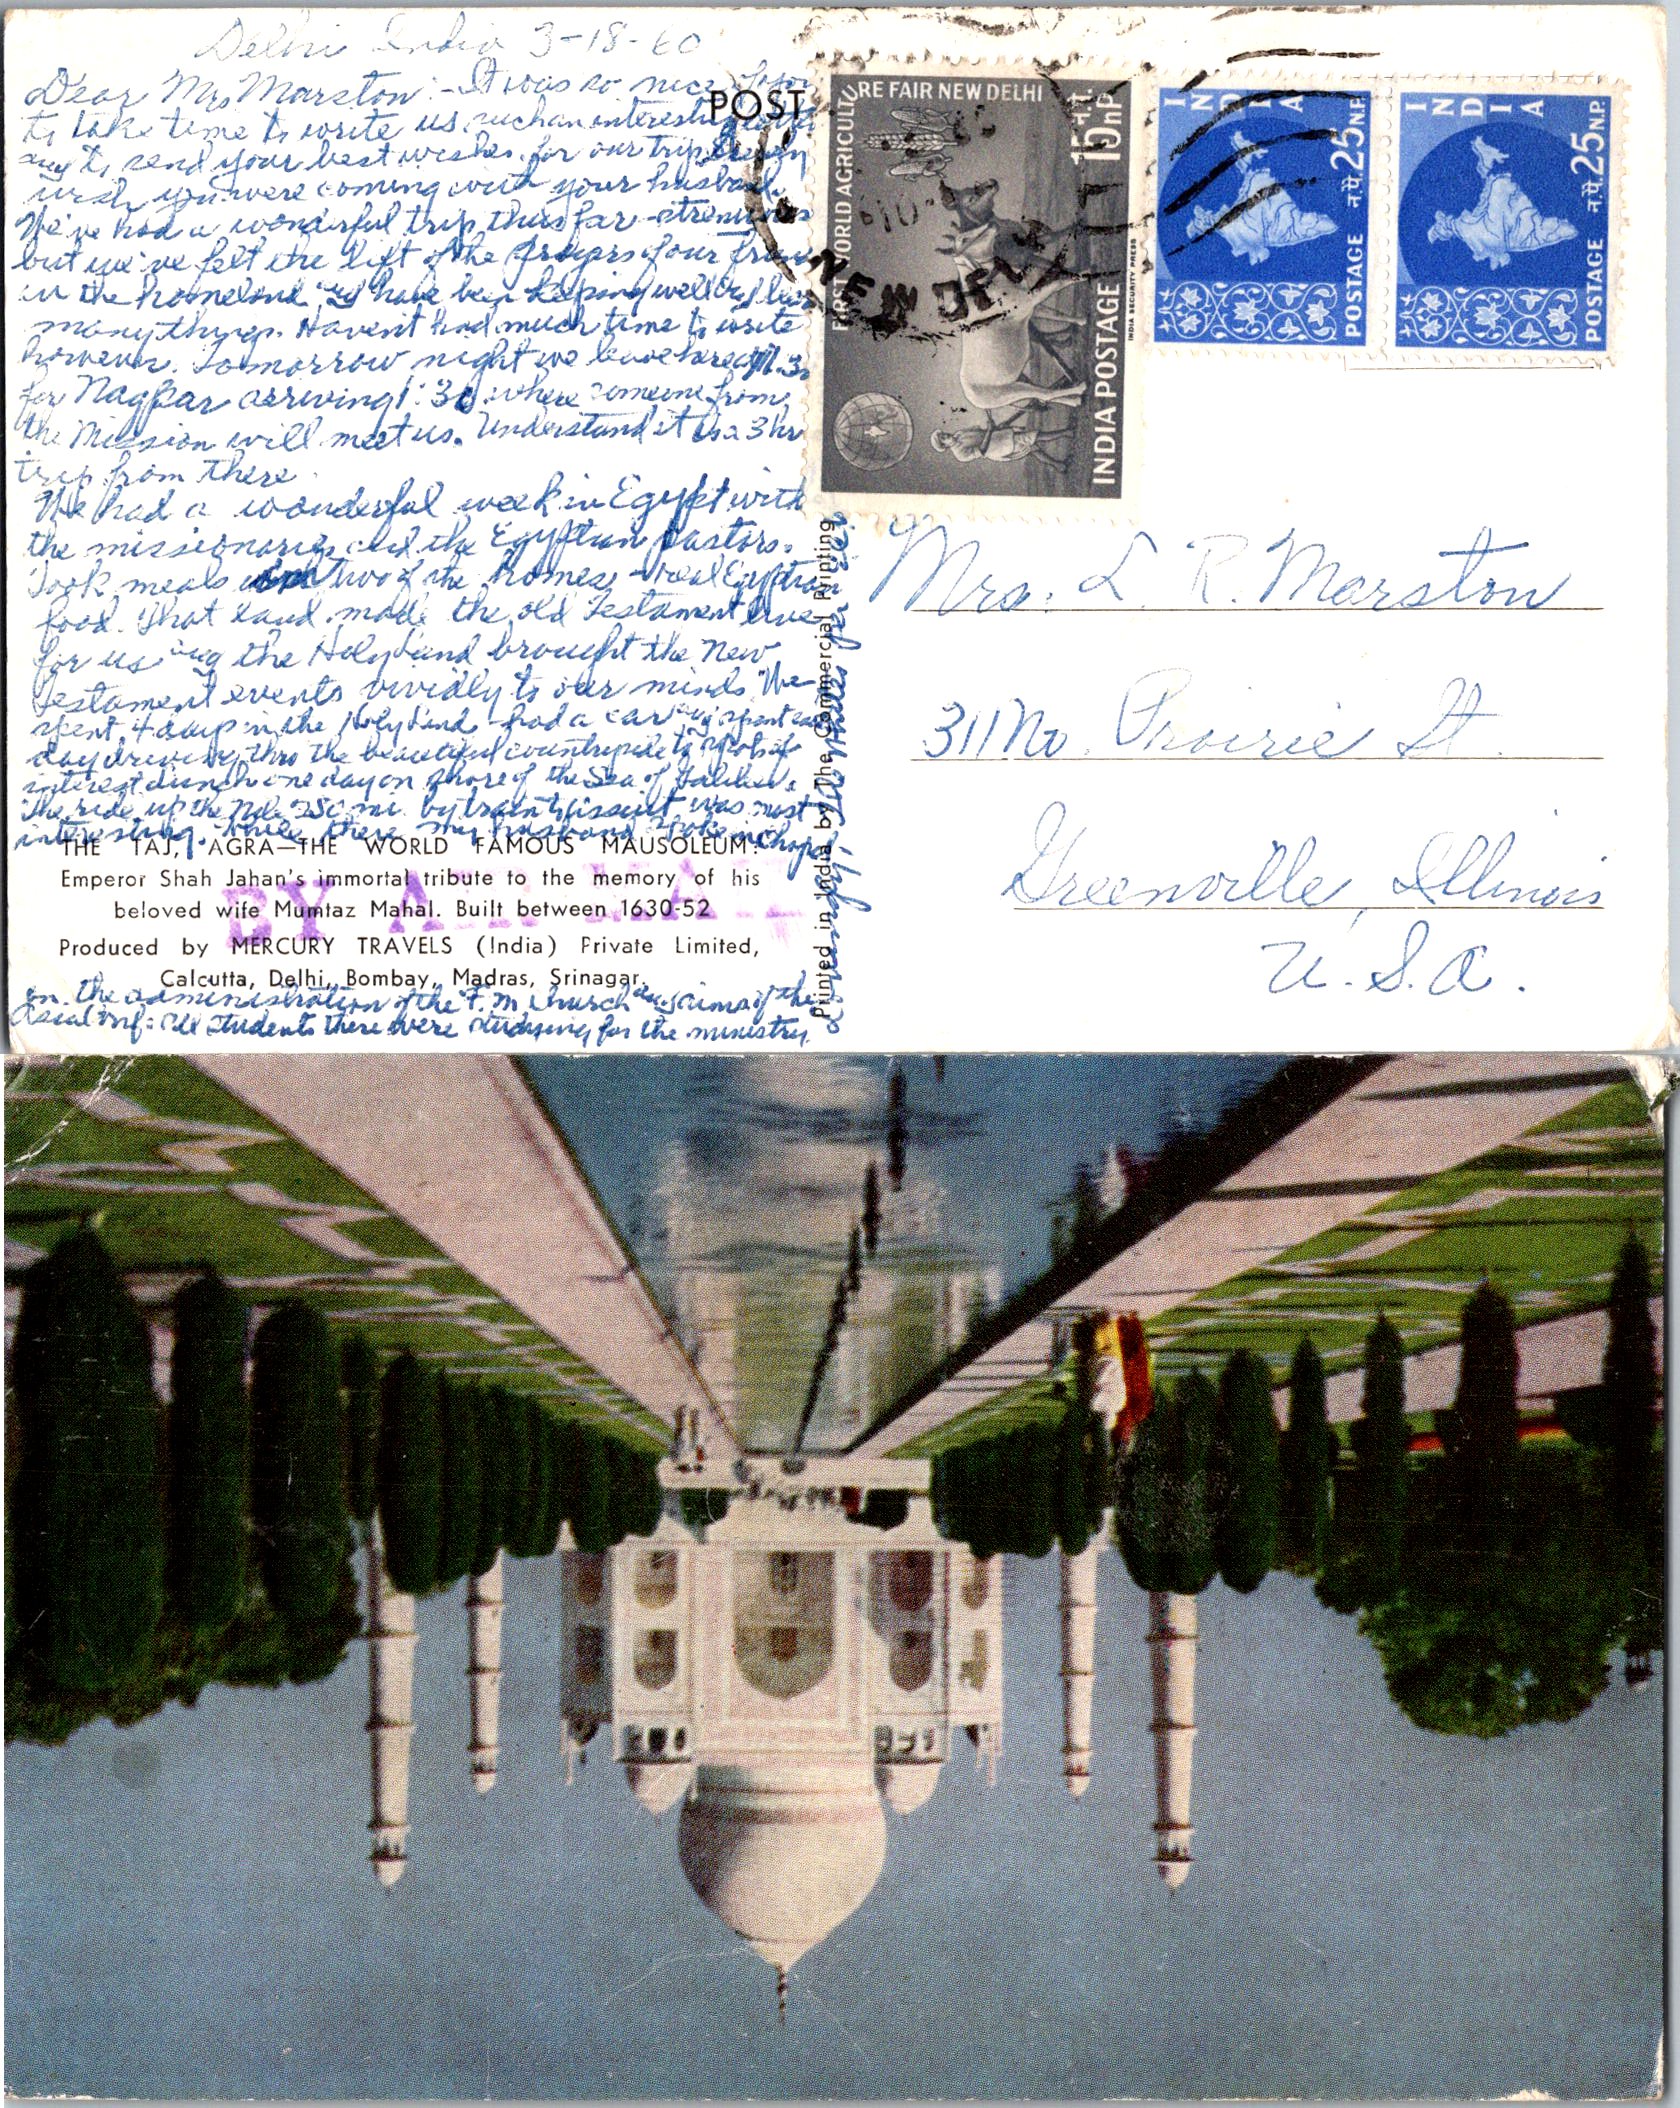 Delhi India 3-18-60
Dear Mrs Marston:- It was so nice of you
to take time to write us such an interesting letter
and to send your best wishes for our trip.
wish you were coming with your husband.
We've had a wonderful trip thus far - strenuous
but we've felt the lift of the prayers of our friends
in the homeland. have been keeping well
many things. Haven't had much time to write
however. Tomorrow night we leave here
for Nagpar arriving 1:30 where someone from
the Mission will meet us. Understand it is a 3 hr
trip from there.
We had a wonderful week in Egypt with
the missionaries and the Egyptian pastors.
Took meals in two of the homes - real Egyptian
food. That land made the old Testament live
for us and the Holy Land brought the New
Testament events vividly to our minds. We
spent 4 days in the Holy Land - had a car and spent each
day driving thro the beautiful countryside to spots of
interest. Lunch one day on shore of the Sea of Galilee.
The ride up the Nile 250 mi. by train to Assiut was most
interesting. While there my husband spoke in Chapel
THE TAJ, AGRA—THE WORLD FAMOUS MAUSOLEUM:
Emperor Shah Jahan's immortal tribute to the memory of his
beloved wife Mumtaz Mahal. Built between 1630-52
Produced by MERCURY TRAVELS (India) Private Limited,
Calcutta, Delhi, Bombay, Madras, Srinagar.
BY AIR MAIL
on the administration of the F. M. Church and aims of the
: All students there were studying for the ministry.
Printed in India by The Commercial Printing
POST
FIRST WORLD AGRICULTURE FAIR NEW DELHI
15 न.प.
15 nP.
INDIA POSTAGE
INDIA SECURITY PRESS
NEW DELHI
INDIA
न.पै. 25 N.P.
POSTAGE
INDIA
न.पै. 25 N.P.
POSTAGE
Mrs. L. R. Marston
311 No. Prairie St.
Greenville, Illinois
U.S.A.